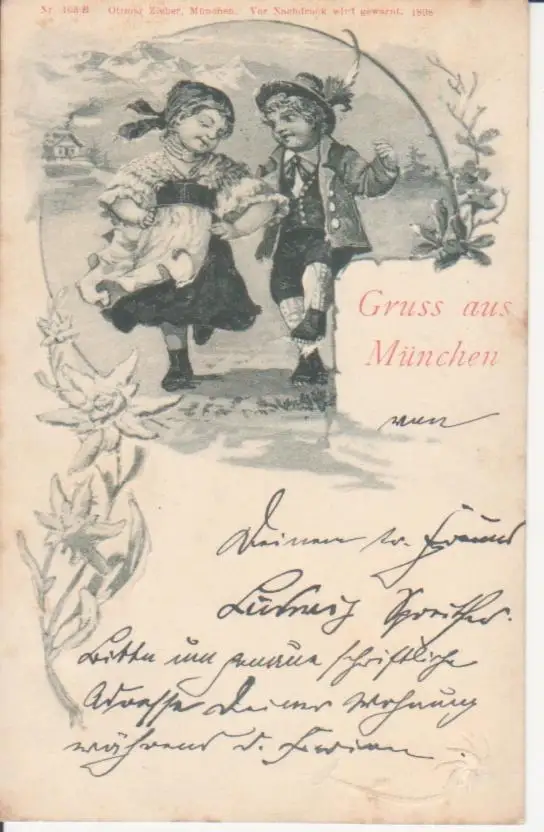 Nr. 163 B Ottmar Zieher, München. Vor Nachdruck wird gewarnt. 1898
Gruss aus
München
von
Deinem tr. Freund
Ludwig
Bitte um genaue schriftliche
Adresse Deiner Wohnung
während d. Ferien